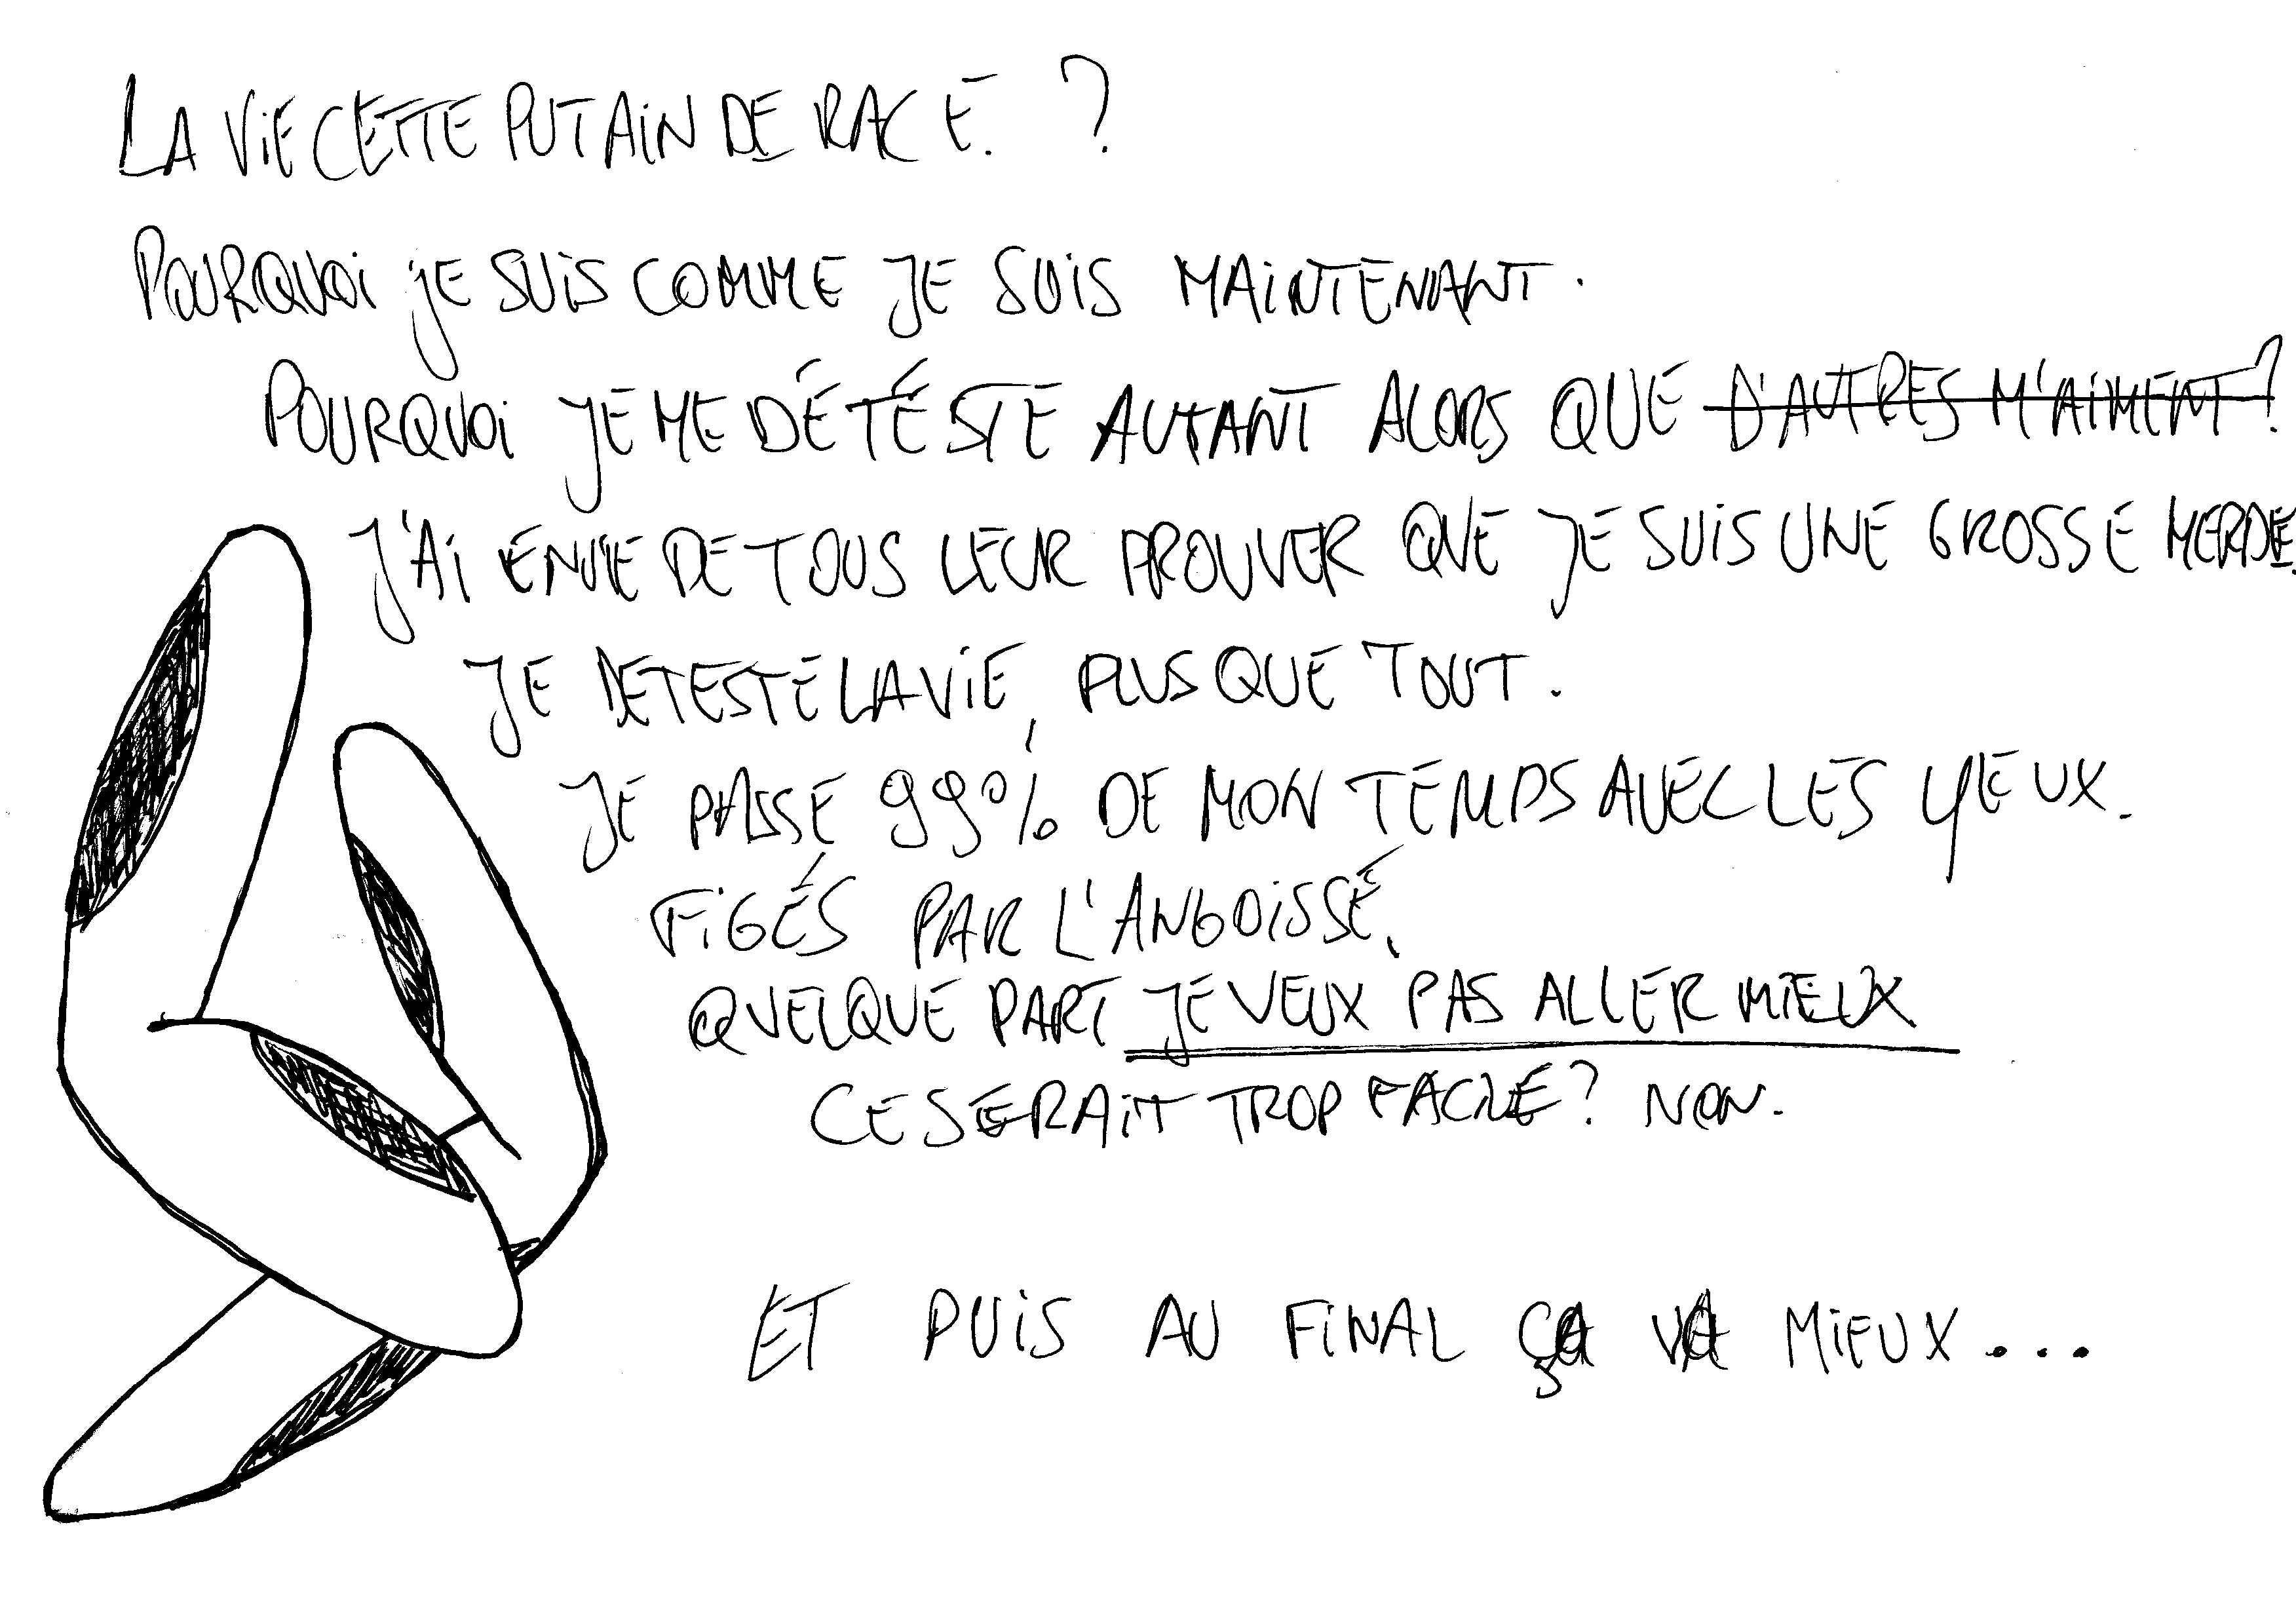 LA VIE CETTE PUTAIN DE RACE. ?
POURQUOI JE SUIS COMME JE SUIS MAINTENANT.
POURQUOI JE ME DÉTÉSTE AUTANT ALORS QUE D'AUTRES M'AIMENT ?
J'AI ENVIE DE TOUS LEUR PROUVER QUE JE SUIS UNE GROSSE MERDE.
JE DETESTE LA VIE, PLUS QUE TOUT.
JE PASSE 99% DE MON TEMPS AVEC LES YEUX.
FIGÉS PAR L'ANGOISSE.
QUELQUE PART JE VEUX PAS ALLER MIEUX
CE SERAIT TROP FACILE ? NON.
ET PUIS AU FINAL ÇA VA MIEUX...